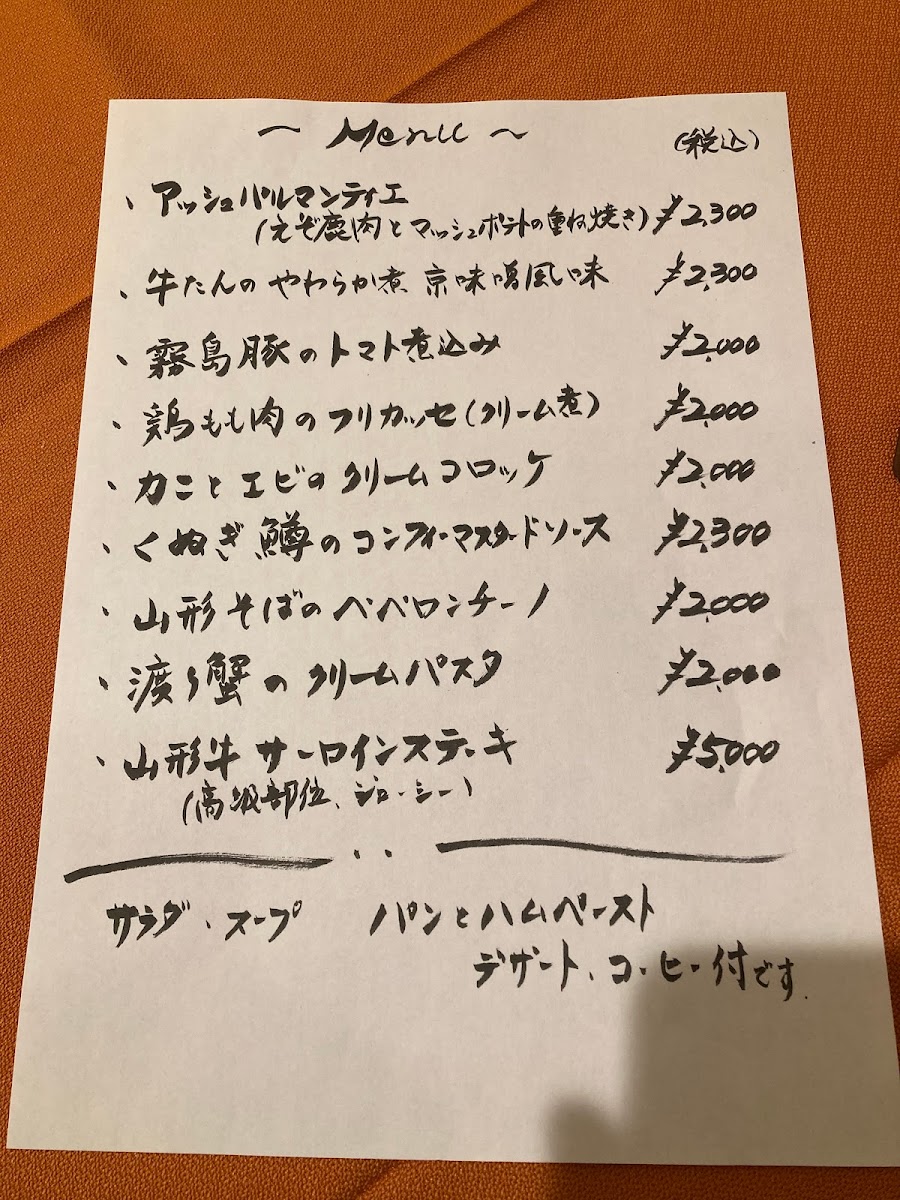 ~ Menu ~ (税込)
・アッシュパルマンティエ
(えぞ鹿肉とマッシュポテトの重ね焼き) ¥2,300
・牛たんのやわらか煮 京味噌風味 ¥2,300
・霧島豚のトマト煮込み ¥2,000
・鶏もも肉のフリカッセ(クリーム煮) ¥2,000
・カニとエビのクリームコロッケ ¥2,000
・くぬぎ鱒のコンフィーマスタードソース ¥2,300
・山形そばのペペロンチーノ ¥2,000
・渡り蟹のクリームパスタ ¥2,000
・山形牛サーロインステーキ ¥5,000
(高級部位、ジューシー)
サラダ、スープ パンとハムペースト
デザート、コーヒー付です.